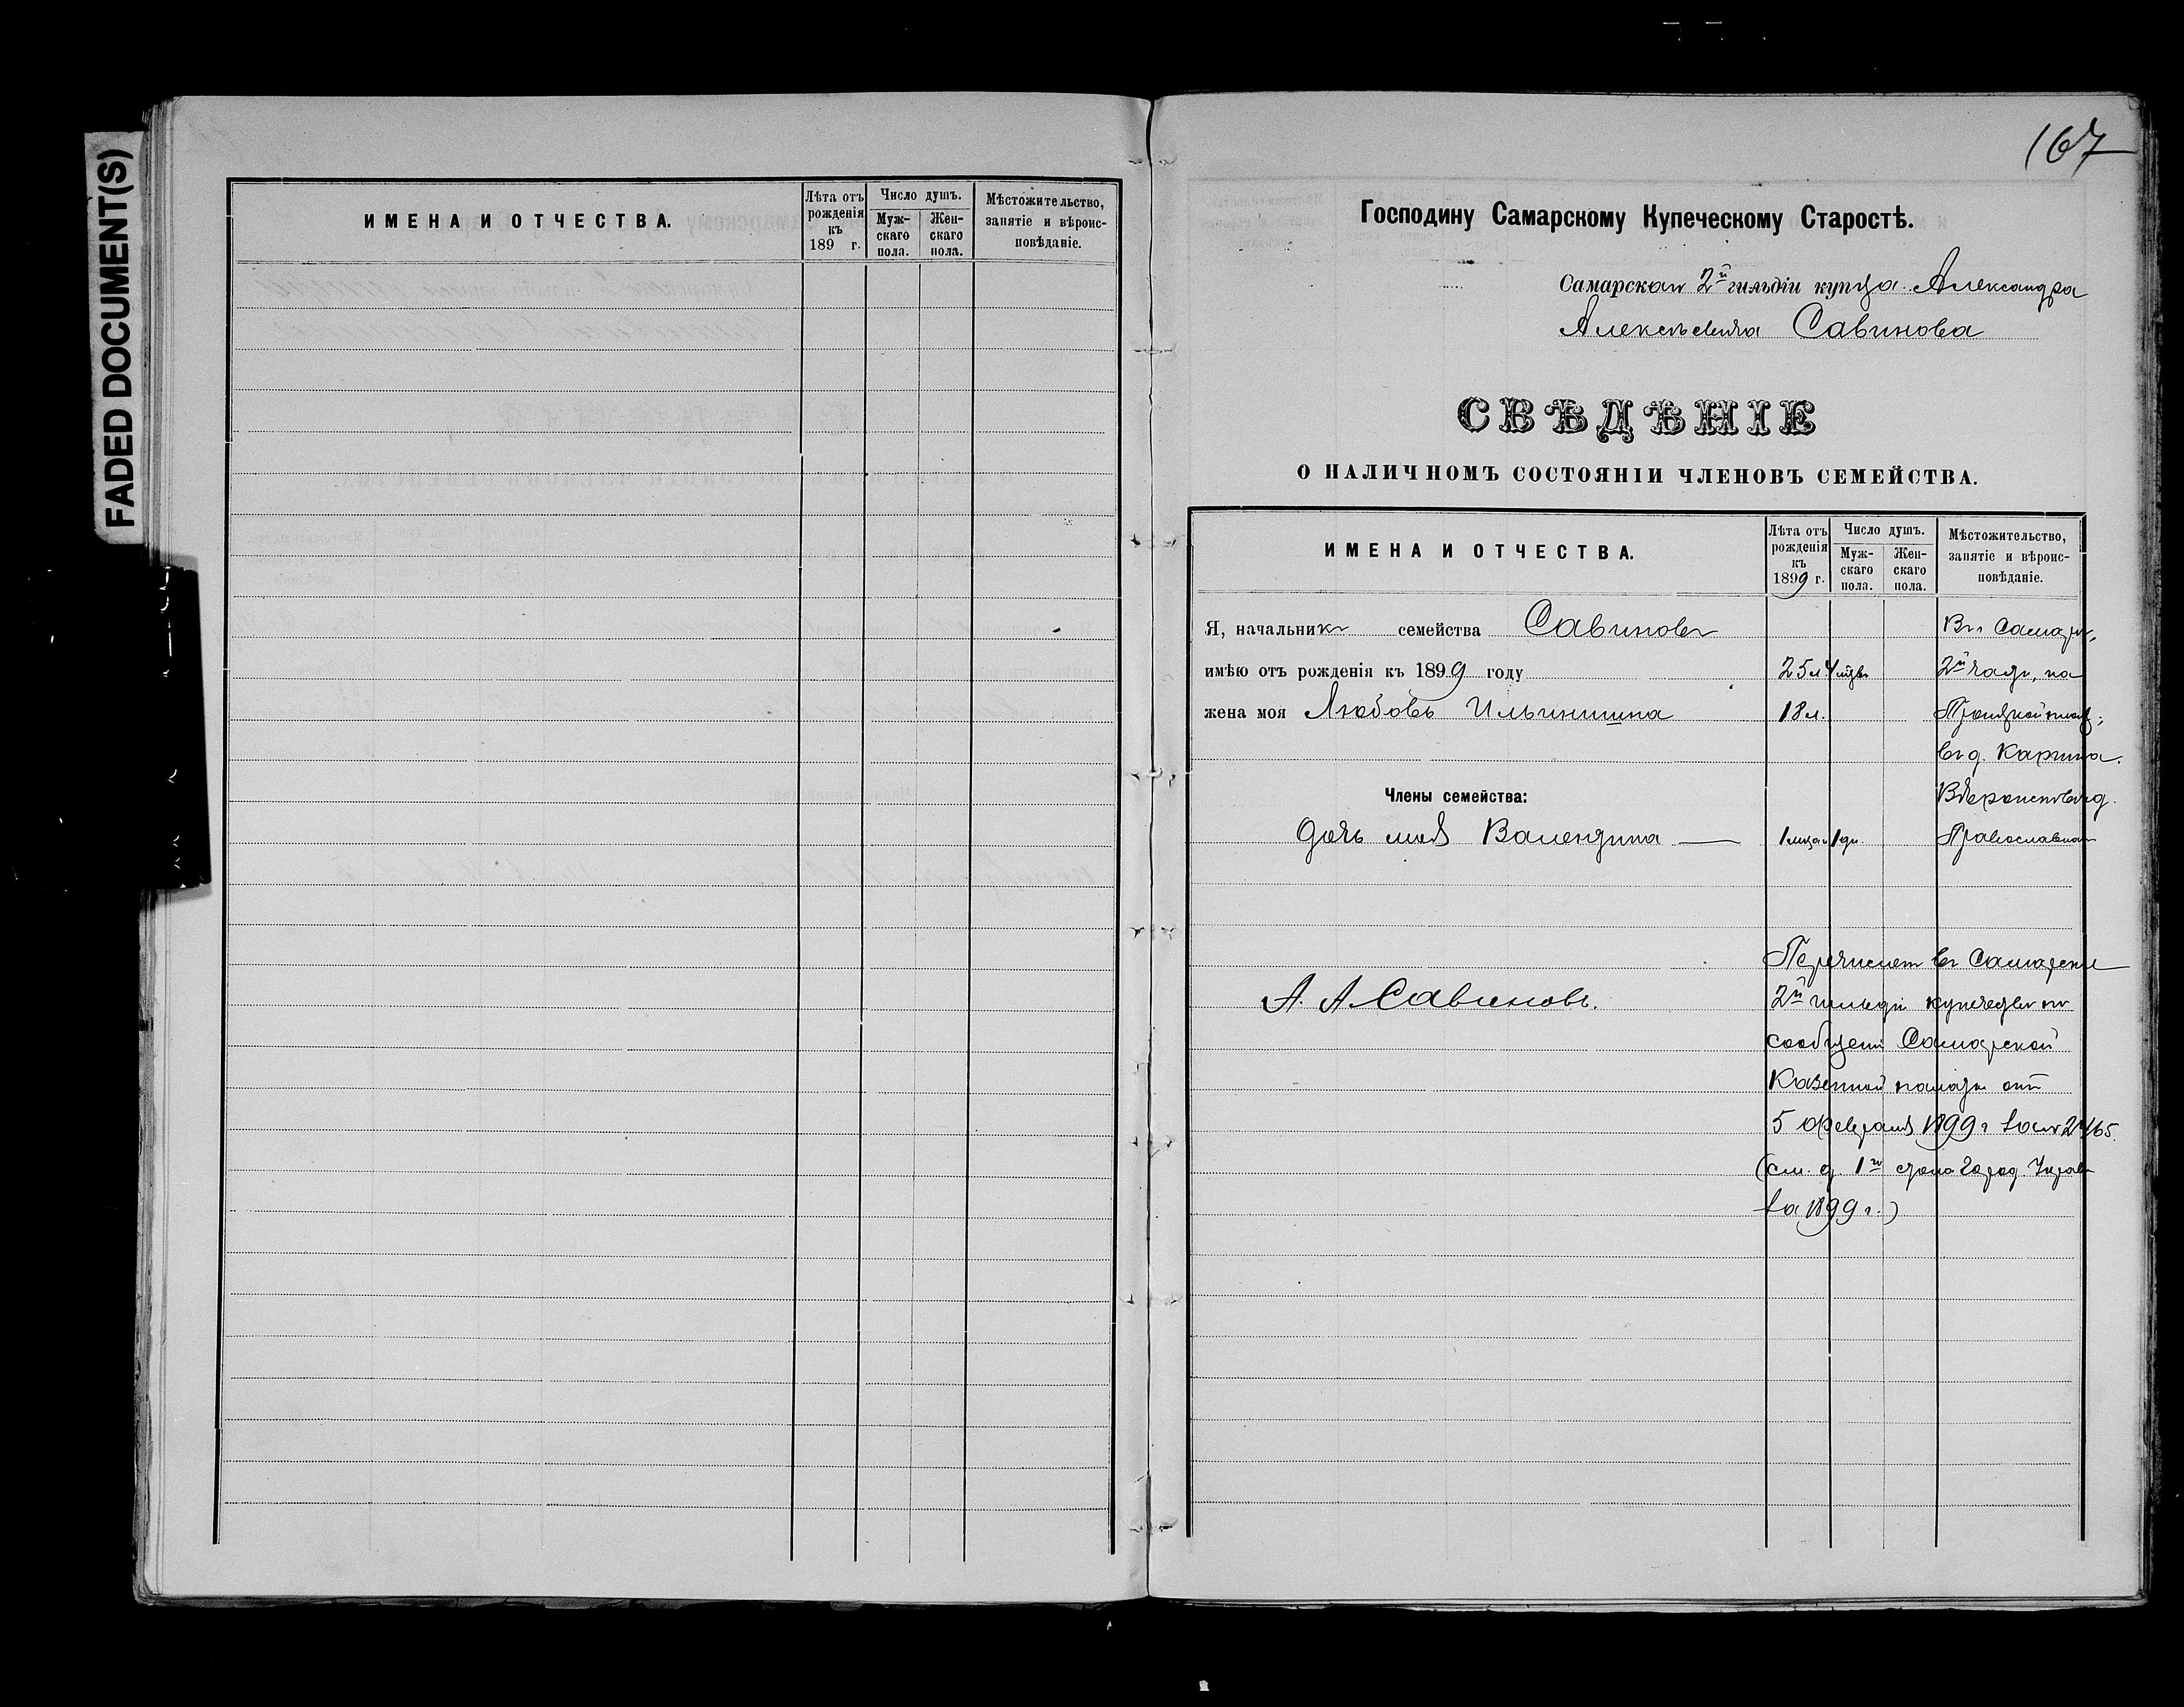 FADED DOCUMENT(S)
ИМЕНА И ОТЧЕСТВА.
Лѣта отъ рожденія къ 189 г.
Число душъ.
Мужскаго пола.
Женскаго пола.
Мѣстожительство, занятіе и вѣроисповѣданіе.
167
Господину Самарскому Купеческому Старостѣ.
Самарскаго 2й гильдіи купца Александра
Алексѣевича Савинова
СВѢДѢНІЕ
О НАЛИЧНОМЪ СОСТОЯНІИ ЧЛЕНОВЪ СЕМЕЙСТВА.
ИМЕНА И ОТЧЕСТВА.
Лѣта отъ рожденія къ 1899 г.
Число душъ.
Мужскаго пола.
Женскаго пола.
Мѣстожительство, занятіе и вѣроисповѣданіе.
Я, начальникъ семейства Савиновъ Въ г. Самарѣ,
имѣю отъ рожденія къ 1899 году 25 л. 4 мѣс. 2й части, на
жена моя Любовь Ильинишна 18 л. Троицкой площ.;
въ д. Каргина.
Члены семейства: Вѣроисповѣд.
Дочь моя Валентина — 1 мѣсяцъ 1 дн. Православнаго
Перечисленъ въ Самарское
А. А. Савиновъ. 2й гильдіи купечество по
сообщенію Самарской
Казенной палаты отъ
5 февраля 1899 г. за №
(см. д. 1го стола Город. Управы
за 1899 г.)